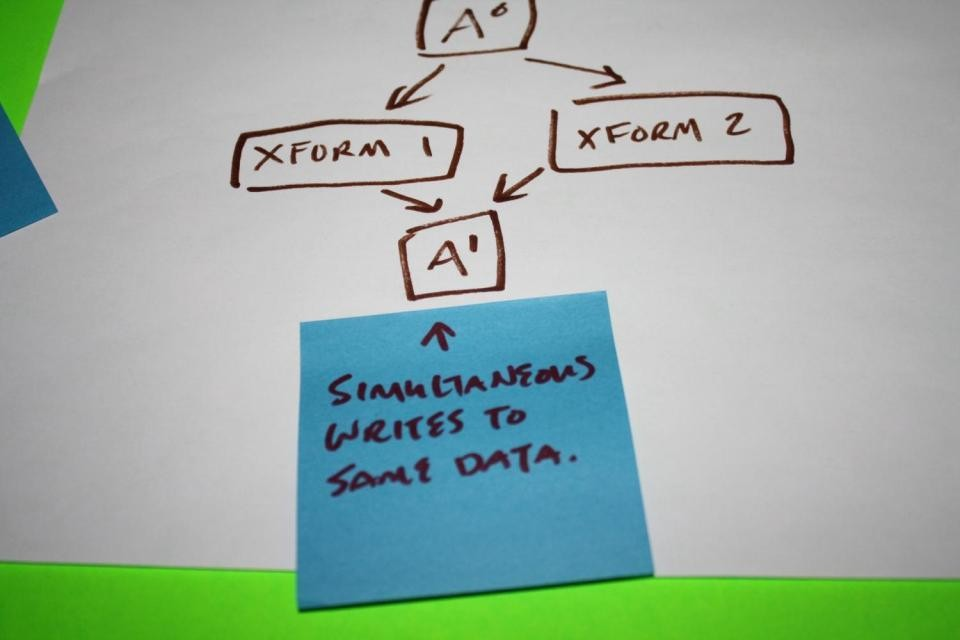 A⁰
XFORM 1
XFORM 2
A'
SIMULTANEOUS
WRITES TO
SAME DATA.